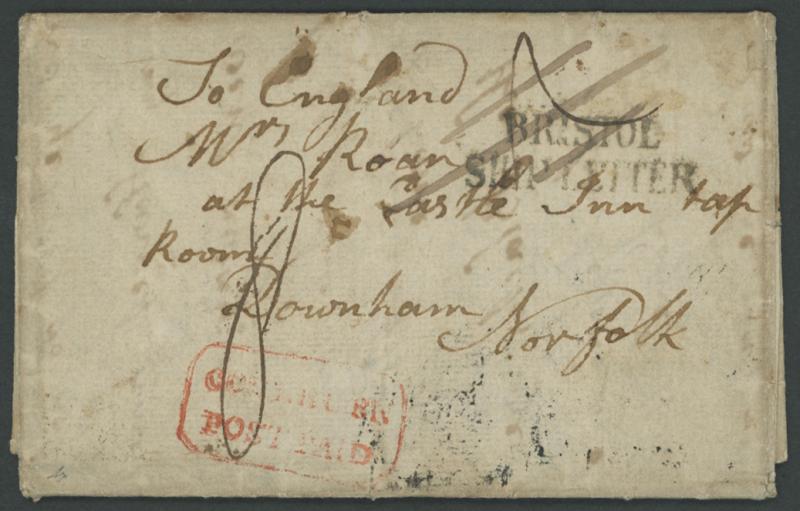 To England
Mrs Roan
at the Castle Inn tap
Room
Downham
Norfolk
BRISTOL
SHIP LETTER
8
POST PAID